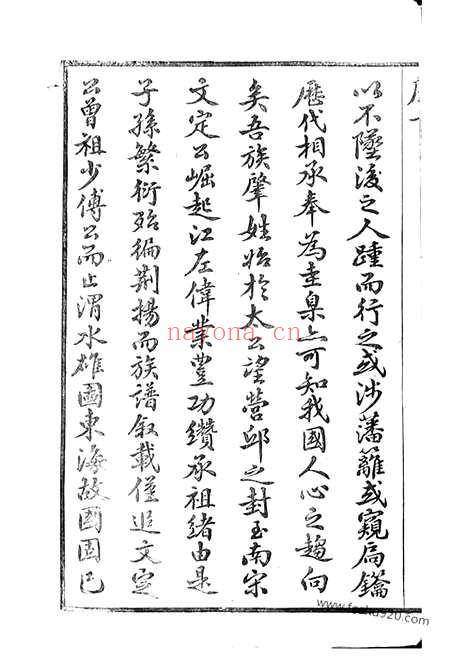 以不墜後之人踵而行之或涉藩籬或窺扃鑰
歷代相承奉為圭臬亦可知我國人心之趨向
矣吾族肇姓始於太公望營邱之封至南宋
文定公崛起江左偉業豐功纘承祖緒由是
子孫繁衍殆徧荆揚而族譜叙載僅追文定
公曾祖少傅公而止渭水雄圖東海故國固已
nayona.cn